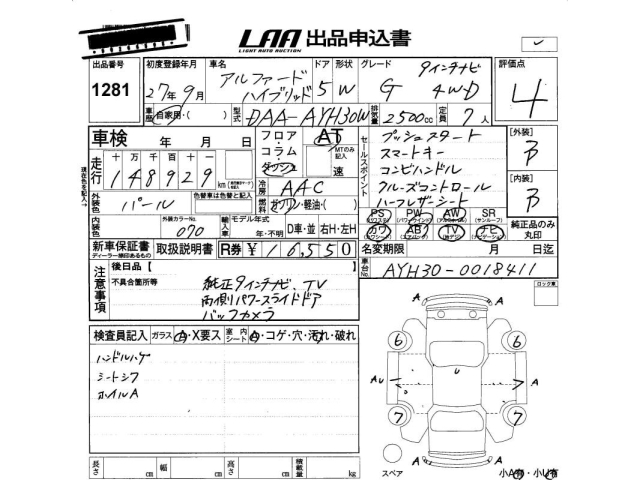 LAA 出品申込書
LIGHT AUTO AUCTION
出品番号 初度登録年月 車名 ドア 形状 グレード 評価点
1281 27年9月 アルファード ハイブリッド 5 W G 9インチナビ 4WD 4
車歴 自家用・( ) 型式 DAA-AYH30W 排気量 2500cc 定員 7人
車検 年 月 日
フロア・コラム・ダッシュ AT MTのみ記入 速
走行 十万千百十一
148929 km
現在色を記入
冷房 AAC
燃料 ガソリン・軽油・( )
外装色 パール 色替車は色替と記入
外装カラーNo. 070
輸入車 モデル年式 年・不明 D車・並 右H・左H
セールスポイント
プッシュスタート
スマートキー
コンビハンドル
クルーズコントロール
ハーフレザーシート
[外装] B
[内装] B
PS PW AW SR (サンルーフ)
カワ AB TV ナビ
純正品のみ丸印
新車保証書 取扱説明書 R券 ¥16,550
ディーラー捺印あるもの
名変期限 月 日迄
車台No. AYH30-0018411
注意事項
後日品【 】
不具合箇所等
純正9インチナビ、TV
両側パワースライドドア
バックカメラ
ロック車
検査員記入 ガラス A・X要ス 室内シート A・コゲ・穴・汚れ・破れ
ハンドルハゲ
シートシワ
ホイルA
A A
6 6
AU U A
7 7
A A
スペア
小A有・小U有
長さ cm 幅 cm 高さ cm 積載量 kg